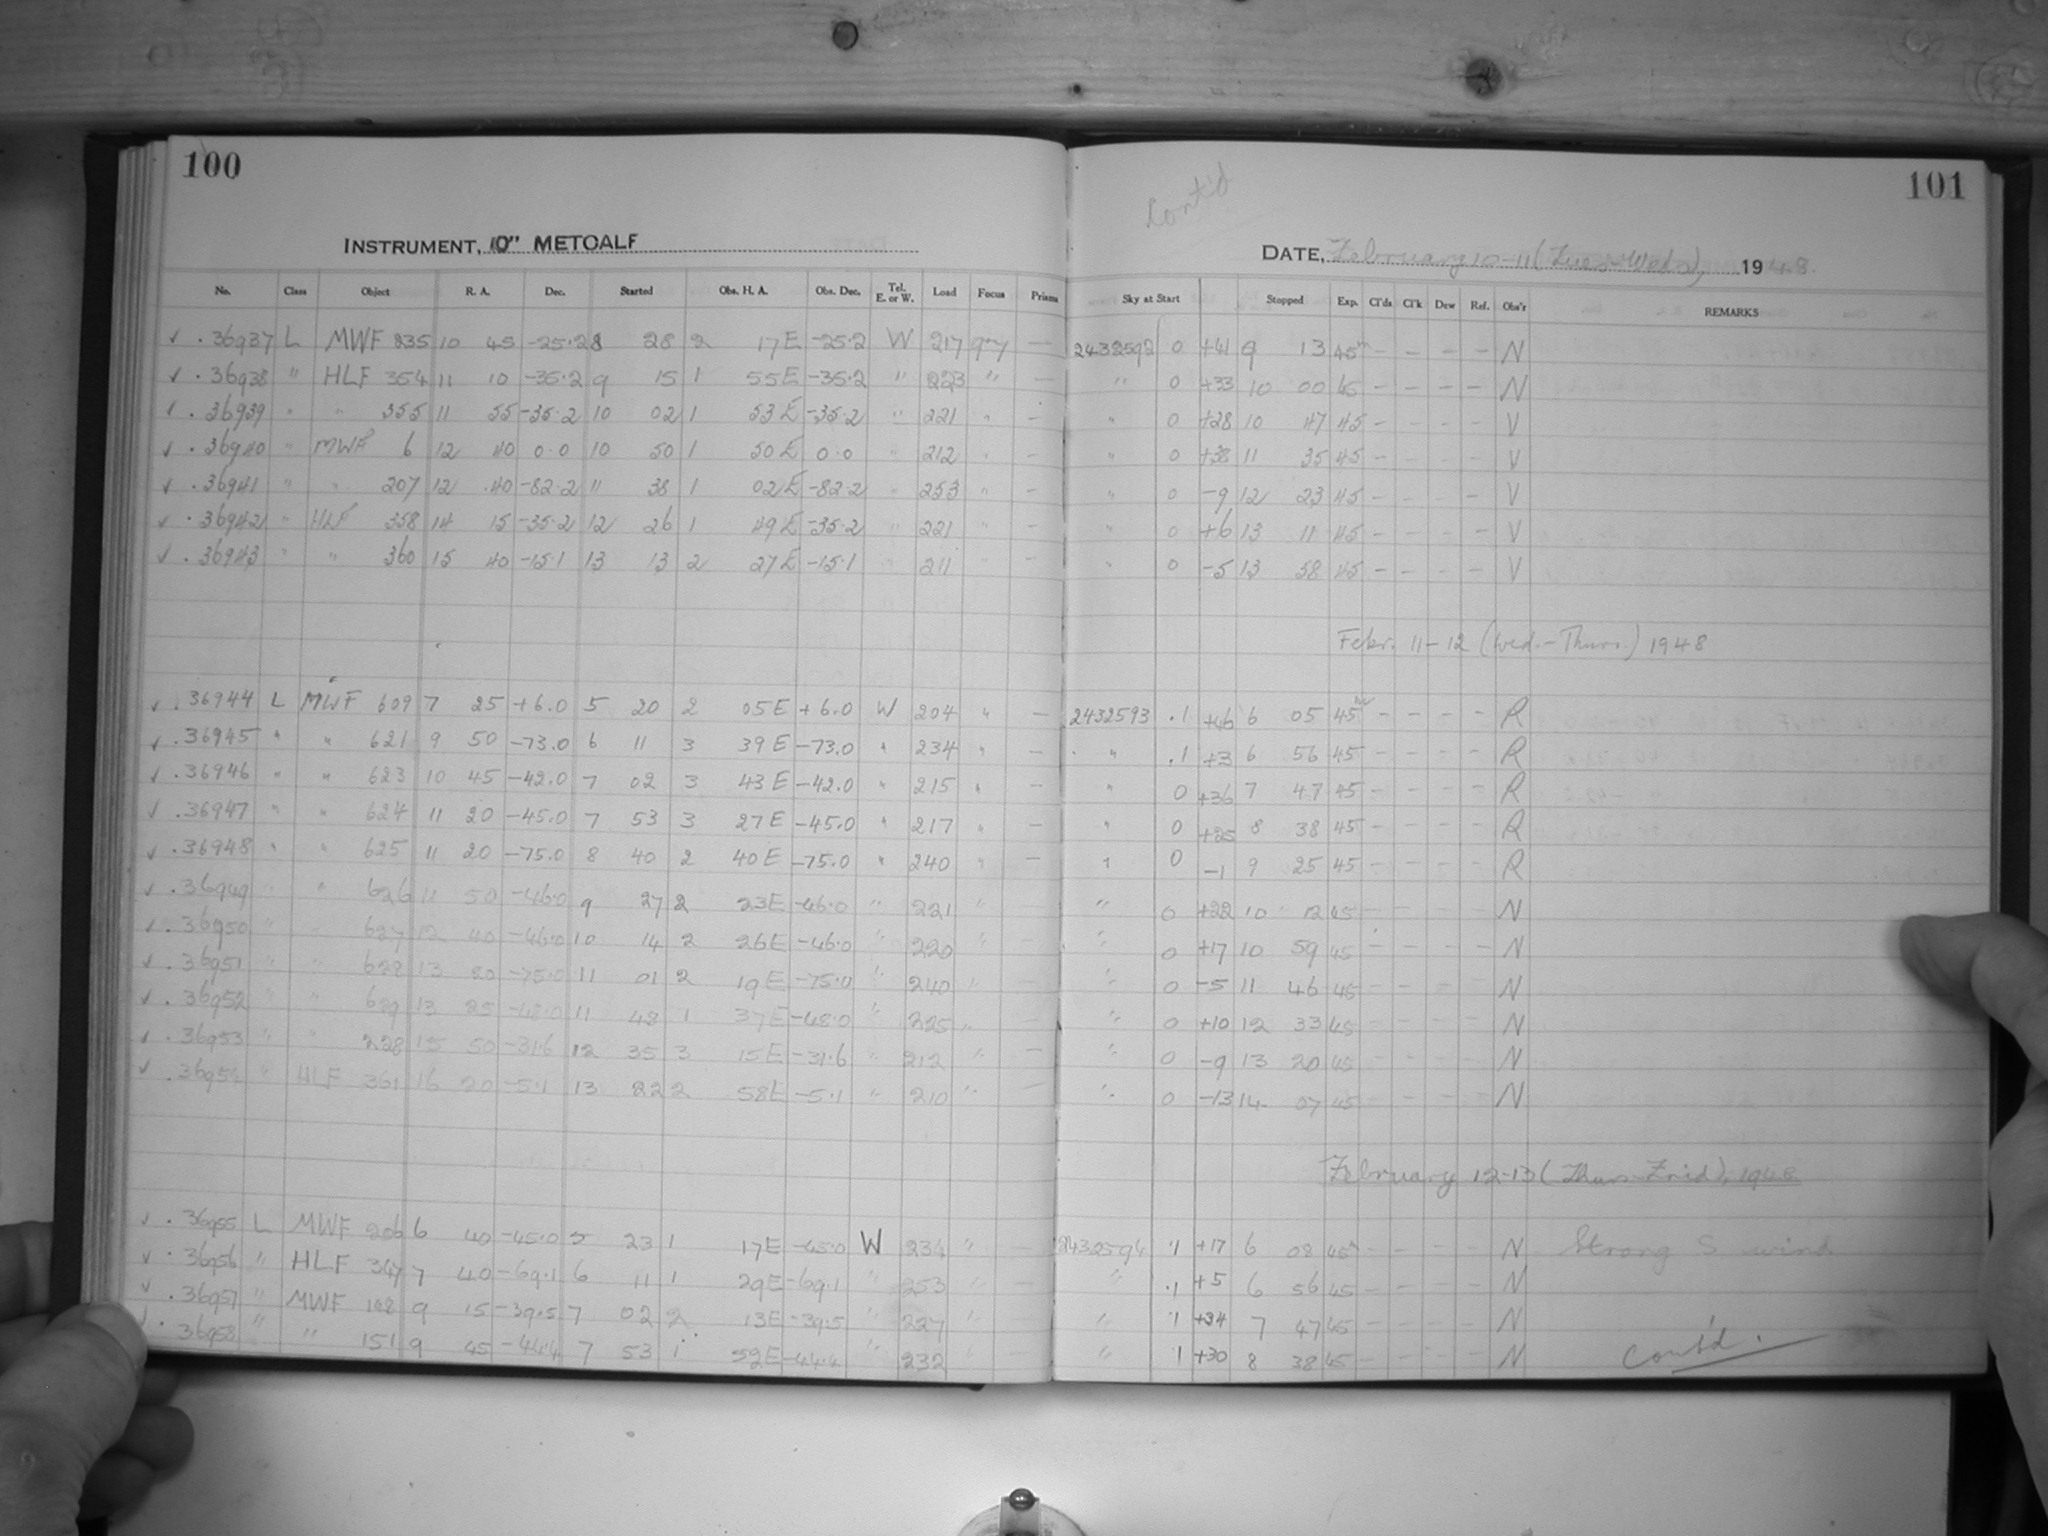 100
INSTRUMENT, 10" METCALF
No. Class Object R. A. Dec. Started Obs. H. A. Obs. Dec. Tel. E. or W. Load Focus Prisms
✓ . 36937 L MWF 835 10 45 -25.2 8 28 2 17E -25.2 W 217 —
✓ . 36938 " HLF 354 11 10 -35.2 9 15 1 55E -35.2 " 223 " —
✓ . 36939 " " 355 11 55 -35.2 10 02 1 53E -35.2 " 221 " —
✓ . 36940 " MWF 6 12 40 0.0 10 50 1 50E 0.0 " 212 " —
✓ . 36941 " " 207 12 40 -82.2 11 38 1 02E -82.2 " 253 " —
✓ . 36942 " HLF 358 14 15 -35.2 12 26 1 49E -35.2 " 221 " —
✓ . 36943 " " 360 15 40 -15.1 13 13 2 27E -15.1 " 211 " —
✓ . 36944 L MWF 609 7 25 +6.0 5 20 2 05E +6.0 W 204 " —
✓ . 36945 " " 621 9 50 -73.0 6 11 3 39E -73.0 " 234 " —
✓ . 36946 " " 623 10 45 -42.0 7 02 3 43E -42.0 " 215 " —
✓ . 36947 " " 624 11 20 -45.0 7 53 3 27E -45.0 " 217 " —
✓ . 36948 " " 625 11 20 -75.0 8 40 2 40E -75.0 " 240 " —
✓ . 36949 " " 626 11 50 -46.0 9 27 2 23E -46.0 " 221 "
✓ . 36950 " " 627 12 40 -46.0 10 14 2 26E -46.0 " 220 " —
✓ . 36951 " " 628 13 20 -75.0 11 01 2 19E -75.0 " 240 " —
✓ . 36952 " " 629 13 25 -48.0 11 48 1 37E -48.0 " 225 " —
✓ . 36953 " " 228 15 50 -31.6 12 35 3 15E -31.6 " 212 " —
✓ . 36954 " HLF 361 16 20 -5.1 13 22 2 58E -5.1 " 210 " —
✓ . 36955 L MWF 206 6 40 -45.0 5 23 1 17E -45.0 W 234 " —
✓ . 36956 " HLF 347 7 40 -69.1 6 11 1 29E -69.1 " 253 " —
✓ . 36957 " MWF 9 15 -39.5 7 02 2 13E -39.5 " 227 " —
✓ . 36958 " " 151 9 45 -44.4 7 53 1 52E -44.4 " 232 " —
101
Cont'd
DATE, February 10-11 (Tues-Weds), 1948.
Sky at Start Stopped Exp. Cl'ds Cl'k Dew Ref. Obs'r REMARKS
2432592 0 +41 9 13 45m — — — — N
" 0 +33 10 00 45 — — — — N
" 0 +28 10 47 45 — — — — V
" 0 +38 11 35 45 — — — — V
" 0 -9 12 23 45 — — — — V
" 0 +6 13 11 45 — — — — V
" 0 -5 13 58 45 — — — — V
Febr. 11-12 (Wed.-Thurs.) 1948
2432593 .1 +46 6 05 45m — — — — R
" .1 +3 6 56 45 — — — — R
" 0 +36 7 47 45 — — — — R
" 0 +25 8 38 45 — — — — R
" 0 -1 9 25 45 — — — — R
" 0 +22 10 12 45 — — — — N
" 0 +17 10 59 45 — — — — N
" 0 -5 11 46 45 — — — — N
" 0 +10 12 33 45 — — — — N
" 0 -9 13 20 45 — — — — N
" 0 -13 14 07 45 — — — — N
February 12-13 (Thurs-Frid), 1948
2432594 .1 +17 6 08 45m — — — — N Strong S wind
" .1 +5 6 56 45 — — — — N
" .1 +34 7 47 45 — — — — N
" .1 +30 8 38 45 — — — — N
Cont'd.